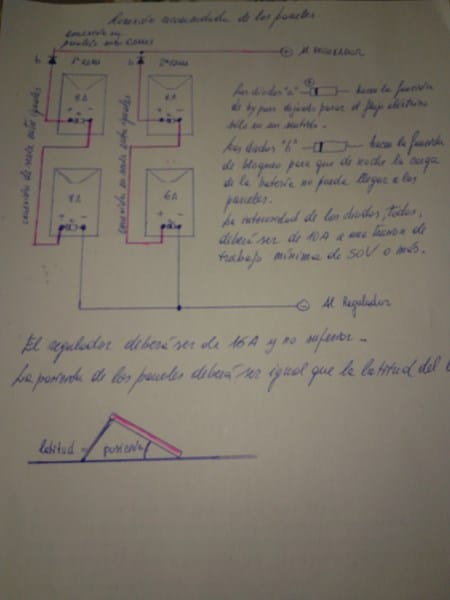 Conexión recomendada de los paneles.
conexión en
paralelo entre ramas
Al REGULADOR
b
b
1ª RAMA
2ª RAMA
8A
6A
+ -
+ -
a
a
conexión de serie entre iguales
conexión en serie entre iguales
8A
6A
+ -
+ -
a
a
Los diodos "a" hacen la función
de by pass dejando pasar el flujo eléctrico
sólo en un sentido.
Los diodos "b" hacen la función
de bloqueo para que de noche la carga
de la batería no pueda llegar a los
paneles.
La intensidad de los diodos, todos,
deberá ser de 10A a una tensión de
trabajo mínima de 50V o más.
Al Regulador
El regulador deberá ser de 16A y no superior.
La posición de los paneles deberá ser igual que la latitud del l
latitud = posición